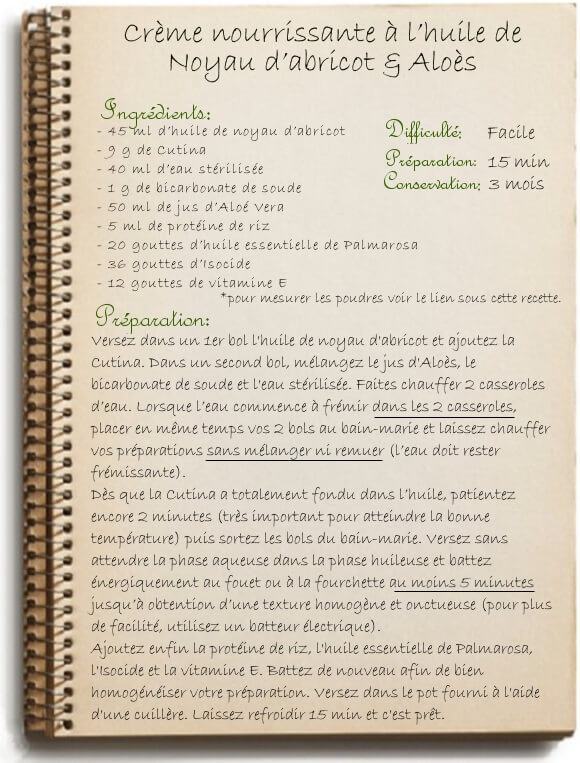 Crème nourrissante à l'huile de
Noyau d'abricot & Aloès
Ingrédients:
- 45 ml d'huile de noyau d'abricot
- 9 g de Cutina
- 40 ml d'eau stérilisée
- 1 g de bicarbonate de soude
- 50 ml de jus d'Aloé Vera
- 5 ml de protéine de riz
- 20 gouttes d'huile essentielle de Palmarosa
- 36 gouttes d'Isocide
- 12 gouttes de vitamine E
Difficulté: Facile
Préparation: 15 min
Conservation: 3 mois
*pour mesurer les poudres voir le lien sous cette recette.
Préparation:
Versez dans un 1er bol l'huile de noyau d'abricot et ajoutez la
Cutina. Dans un second bol, mélangez le jus d'Aloès, le
bicarbonate de soude et l'eau stérilisée. Faites chauffer 2 casseroles
d'eau. Lorsque l'eau commence à frémir dans les 2 casseroles,
placer en même temps vos 2 bols au bain-marie et laissez chauffer
vos préparations sans mélanger ni remuer (l'eau doit rester
frémissante).
Dès que la Cutina a totalement fondu dans l'huile, patientez
encore 2 minutes (très important pour atteindre la bonne
température) puis sortez les bols du bain-marie. Versez sans
attendre la phase aqueuse dans la phase huileuse et battez
énergiquement au fouet ou à la fourchette au moins 5 minutes
jusqu'à obtention d'une texture homogène et onctueuse (pour plus
de facilité, utilisez un batteur électrique).
Ajoutez enfin la protéine de riz, l'huile essentielle de Palmarosa,
l'Isocide et la vitamine E. Battez de nouveau afin de bien
homogénéiser votre préparation. Versez dans le pot fourni à l'aide
d'une cuillère. Laissez refroidir 15 min et c'est prêt.